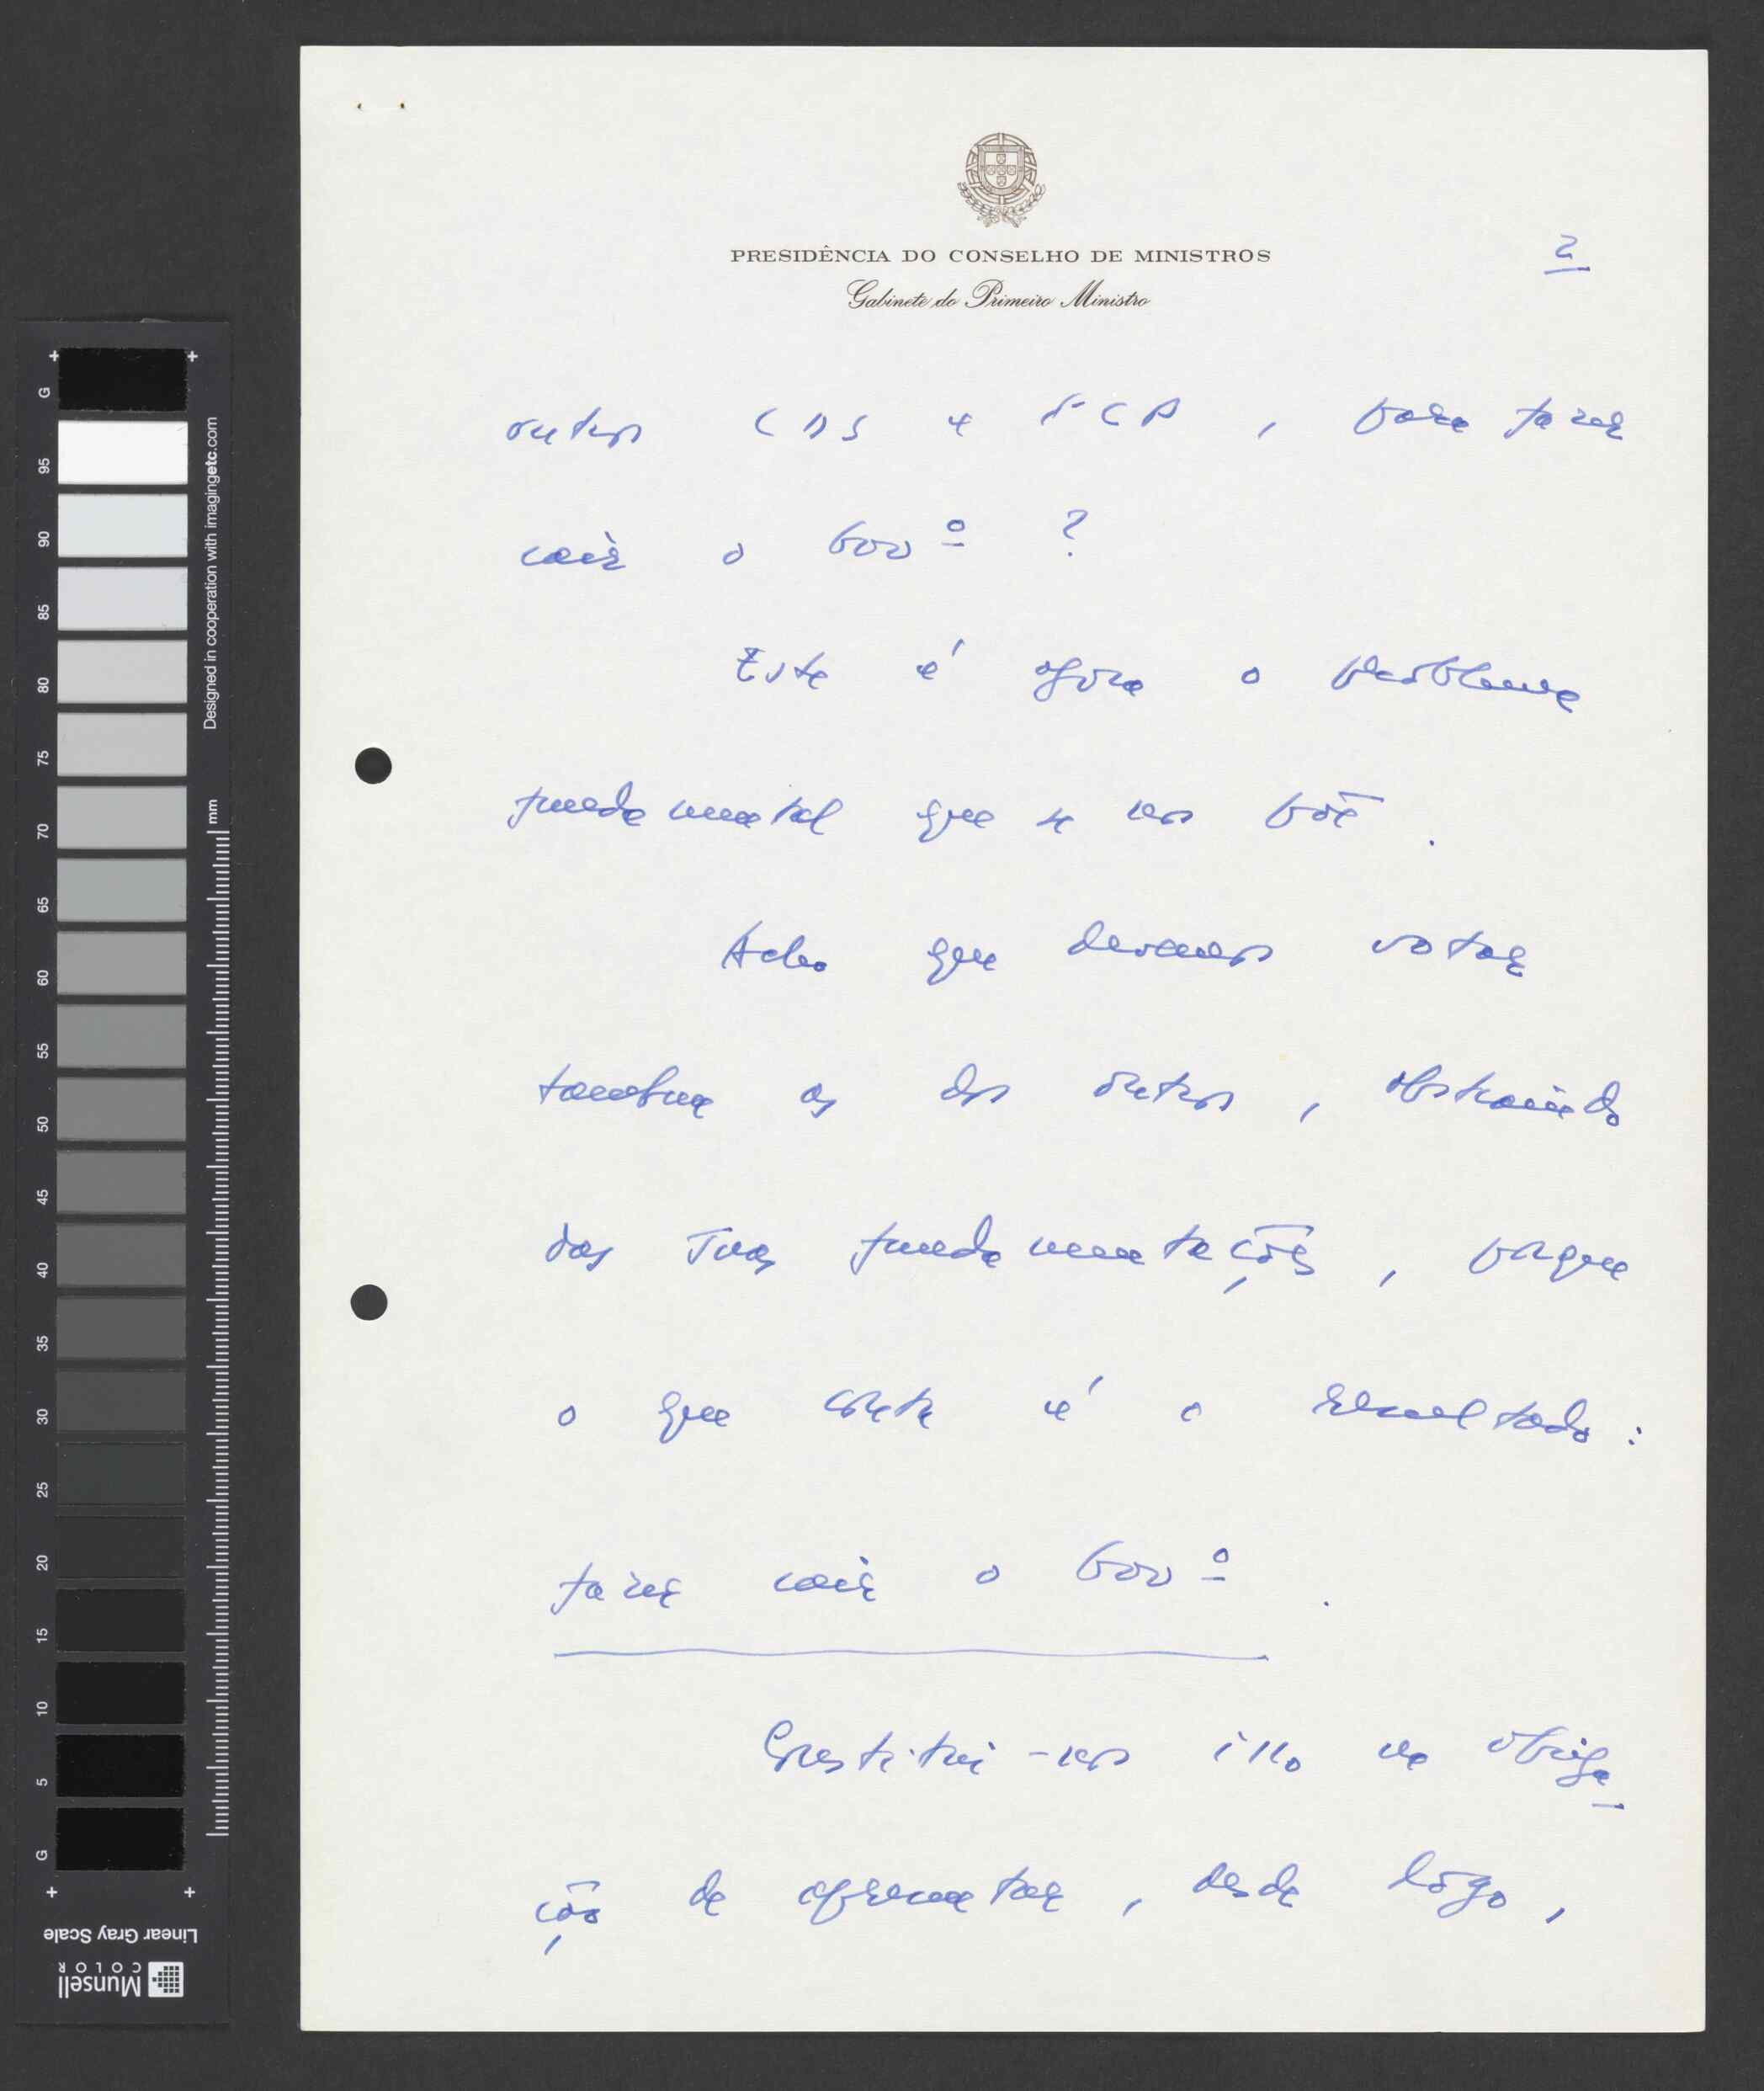 PRESIDÊNCIA DO CONSELHO DE MINISTROS
Gabinete do Primeiro Ministro
2
outros CDS e PCP, para fazer
cair o Govº ?
Este é agora o problema
fundamental que se nos põe.
Acho que devemos votar
também as dos outros, abstraindo
das suas fundamentações, porque
o que conta é o resultado :
fazer cair o Govº .
Constitui-nos isso na obriga_
ção de apresentar, desde logo,
G
95
90
85
80
75
70
65
60
55
50
45
40
35
30
25
20
15
10
5
G
Designed in cooperation with imagingetc.com
mm
Linear Gray Scale
Munsell
COLOR